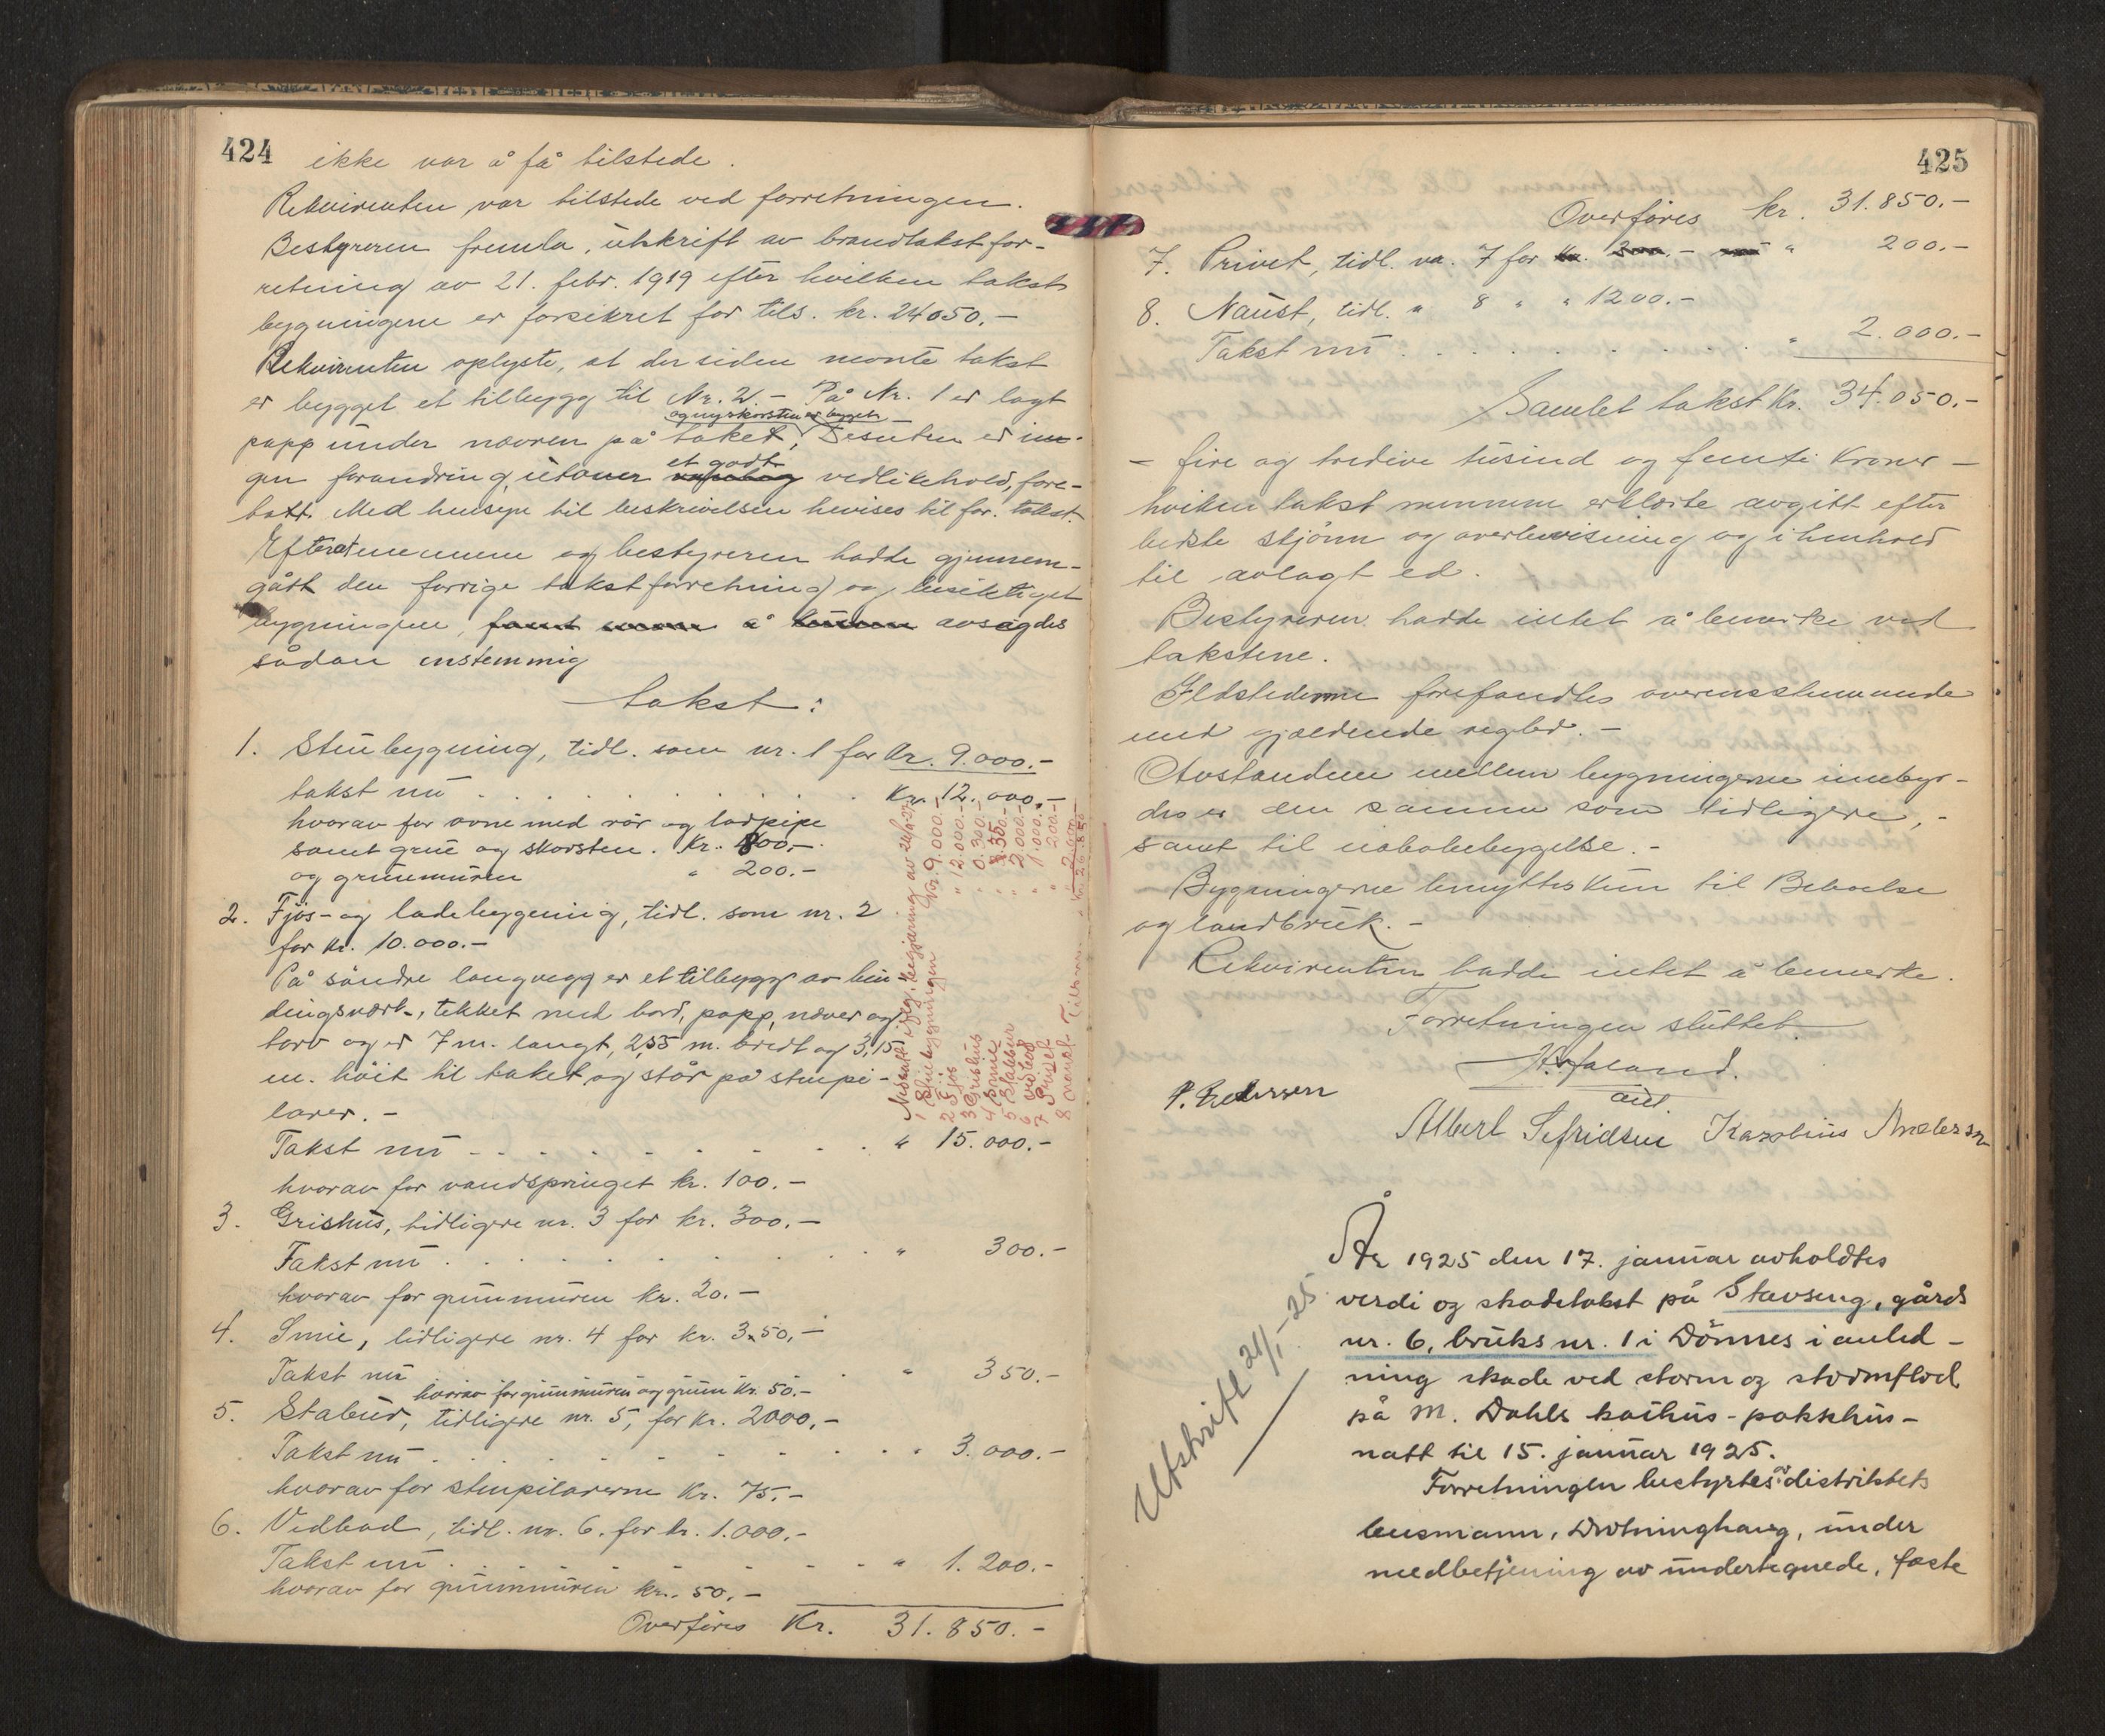 424
ikke var å få tilstede.
Rekvirenten var tilstede ved forretningen.
Bestyreren fremla utskrift av brandtakstfor-
retning av 21. febr. 1919 efter hvilken takst
bygningene er forsikret for tils. kr. 24050.-
Rekvirenten oplyste, at der siden nevnte takst
er bygget et tilbygg til Nr. 2. - På Nr. 1 er lagt
og ny skorsten er bygget
papp under nævren på taket, Desuten er in-
et godt
gen forandring utover vedlikehold, fore-
tatt. Med hensyn til beskrivelsen henvises til for. takst.
Efterat mennene og bestyreren hadde gjennem-
gått den forrige takstforretning og besiktiget
bygningene, avsagdes
sådan enstemmig
takst:
1. Stuebygning, tidl. som nr. 1 for Kr. 9.000.-
takst nu . . . . . Kr. 12.000.-
hvorav for ovne med rör og ladpipe
samt grue og skorsten. Kr. 800.-
og grunmuren " 200.-
2. Fjös- og ladebygning, tidl. som nr. 2
for kr. 10.000.-
På söndre langvegg er et tilbygg av bin-
dingsverk, tekket med bord, papp, næver og
torv og er 7 m. langt, 2,55 m. bredt og 3,15
m. höit til taket og står på stenpi-
larer. -
Takst nu . . . . . " 15.000.-
hvorav for vandspringet kr. 100.-
3. Grishus, tidligere nr. 3 for kr. 300.-
Takst nu . . . . . " 300.-
hvorav for grunmuren kr. 20.-
4. Smie, tidligere nr. 4 for kr. 350.-
Takst nu . . " 350.-
hvorav for grunmuren og gruen Kr. 50.-
5. Stabur, tidligere nr. 5, for kr. 2000.-
Takst nu . . . . . " 3.000.-
hvorav for stenpilarerne Kr. 75.-
6. Vedbod, tidl. nr. 6. for kr. 1.000.-
Takst nu . . . . . " 1.200.-
hvorav for grunnmuren kr. 50.-
Overföres Kr. 31.850.-
Nedsatt begjæring av
1 Stuebygningen Kr. 9.000.-
2 Fjös " 12.000.-
3 Grishus " 0.300.-
4 Smie " 350.-
5 Stabbur " 2.000.-
6 Vedbod " 1.000.-
7 Privet " 200.-
8 Naust " 2.000.-
Tilsammen kr. 26.850
425
Overföres kr. 31.850.-
7. Privet, tidl. nr. 7 for " 200.-
8. Naust, tidl. " 8 " " 1200.-
Takst nu . . . . . " 2.000.-
Samlet takst Kr. 34.050.-
- fire og tredive tusind og femti kroner -
hvilken takst mennene erklærte avgitt efter
bedste skjönn og overbevisning og i henhold
til avlagt ed.
Bestyreren hadde intet å bemerke ved
takstene.
Ildstederne forefandtes overensstemmende
med gjældende regler. -
Avstandene mellem bygningerne innbyr-
des er den samme som tidligere, -
samt til nabobebyggelse. -
Bygningerne benyttes kun til Beboelse
og landbruk. -
Rekvirenten hadde intet å bemerke.
Forretningen sluttet
P. Pedersen
aut.
Albert Sefridsen Karolius Andersen
Utskrift 21/1-25
År 1925 den 17. januar avholdtes
verdi og skadetakst på Stavseng, gårds
nr. 6, bruks nr. 1 i Dönnes i anled-
ning skade ved storm og stormflod
på M. Dahls kaihus - pakkhus -
natt til 15. januar 1925.
Forretningen bestyrtes av distriktets
lensmann, Drotninghaug, under
medbetjening av undertegnede, faste